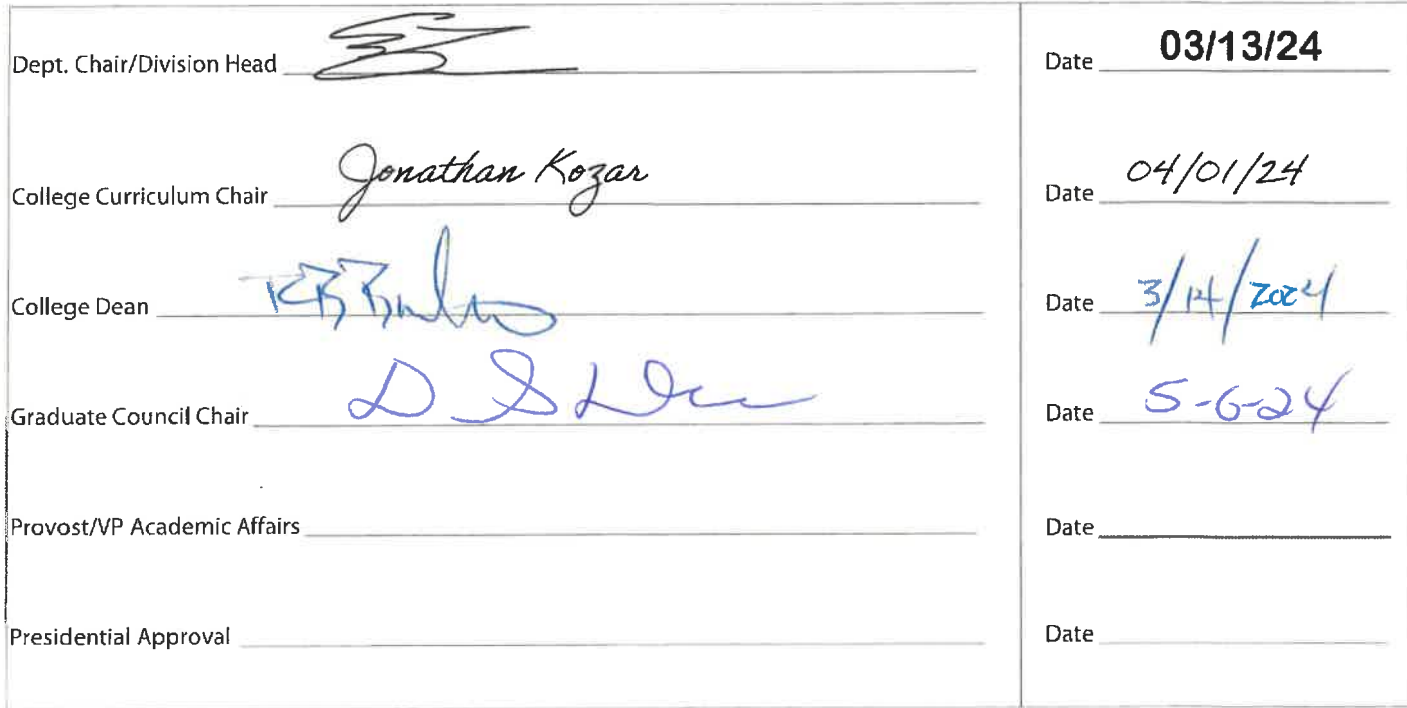 Dept. Chair/Division Head Date 03/13/24
College Curriculum Chair Jonathan Kozar Date 04/01/24
College Dean Date 3/14/2024
Graduate Council Chair Date 5-6-24
Provost/VP Academic Affairs Date
Presidential Approval Date